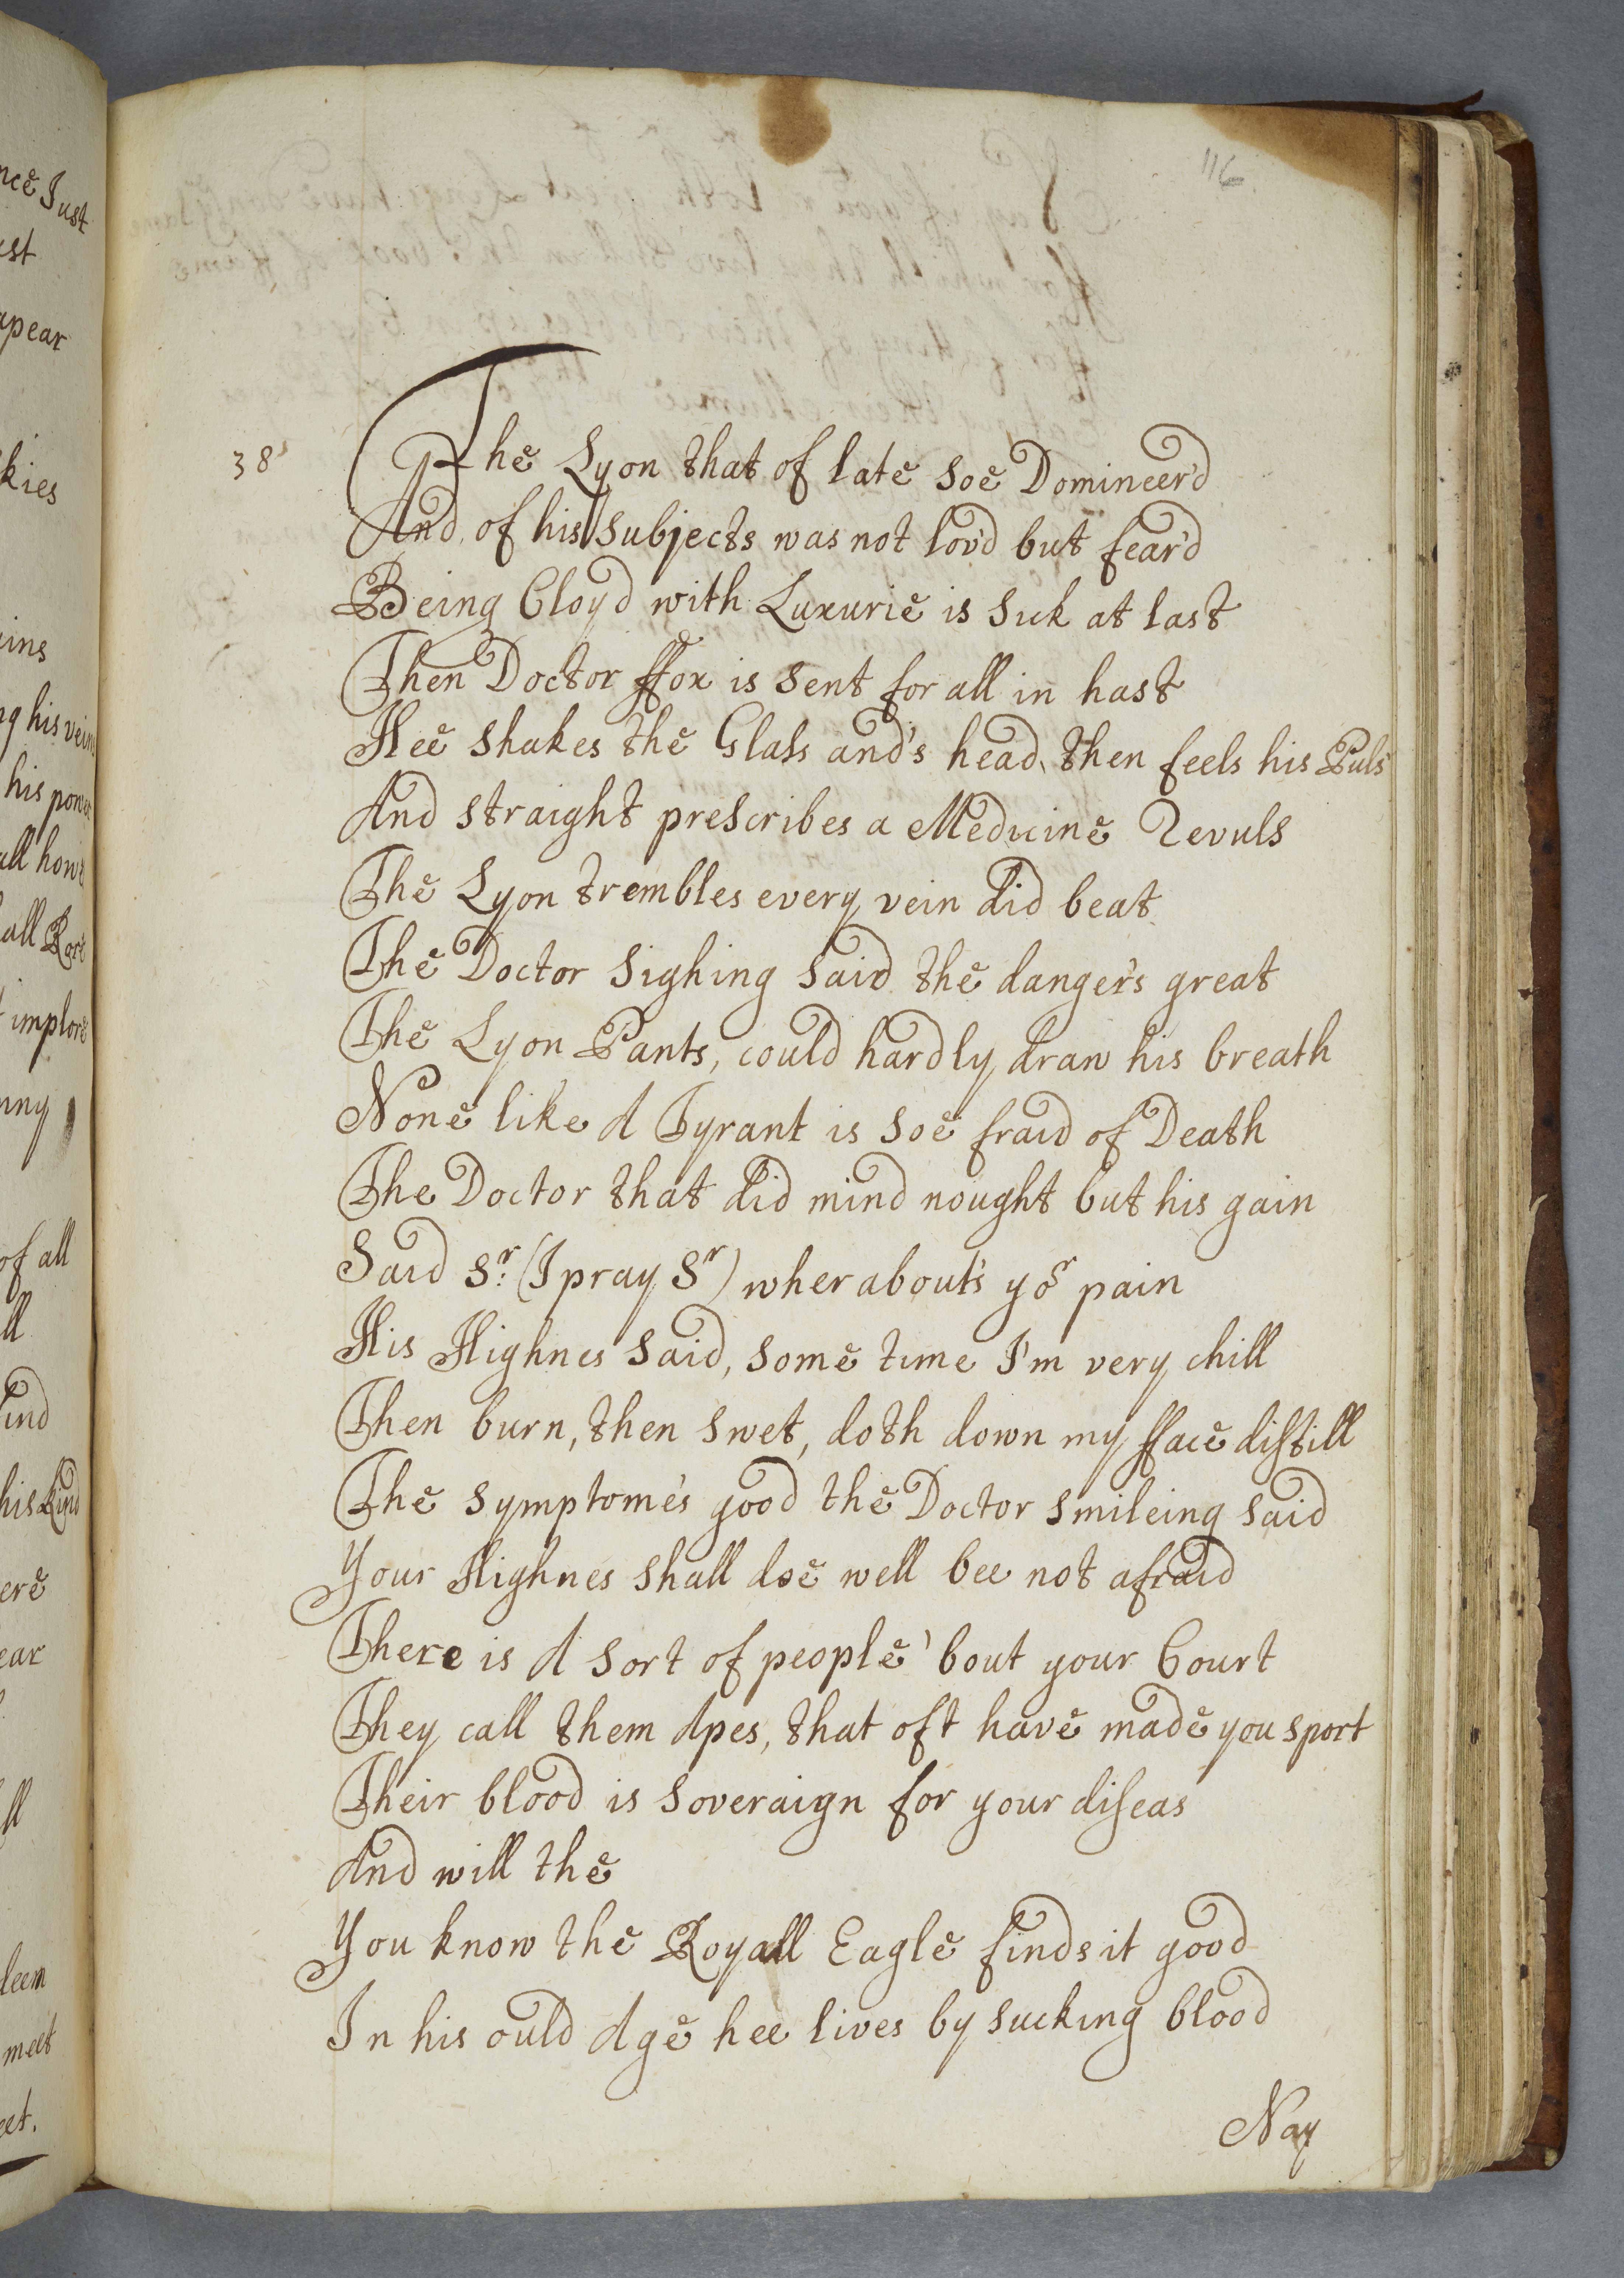 116
38
The Lyon that of late soe Domineer'd
And of his subjects was not lov'd but fear'd
Being Cloy'd with Luxurie is sick at last
Then Doctor ffox is sent for all in hast
Hee shakes the Glass and's head, then feels his Puls
And straight prescribes a Medicine Revuls
The Lyon trembles every vein did beat
The Doctor sighing said the danger's great
The Lyon Pants, could hardly draw his breath
None like A Tyrant is soe fraid of Death
The Doctor that did mind nought but his gain
Said Sr: (I pray Sr) wher about's yor pain
His Highnes said, some time I'm very chill
Then burn, then swet, doth down my fface distill
The symptome's good the Doctor smileing said
Your Highnes shall doe well bee not afraid
There is A sort of people 'bout your Court
They call them Apes, that oft have made you sport
Their blood is soveraign for your diseas
And will the
You know the Royall Eagle finds it good
In his ould Age hee lives by sucking blood
Nay